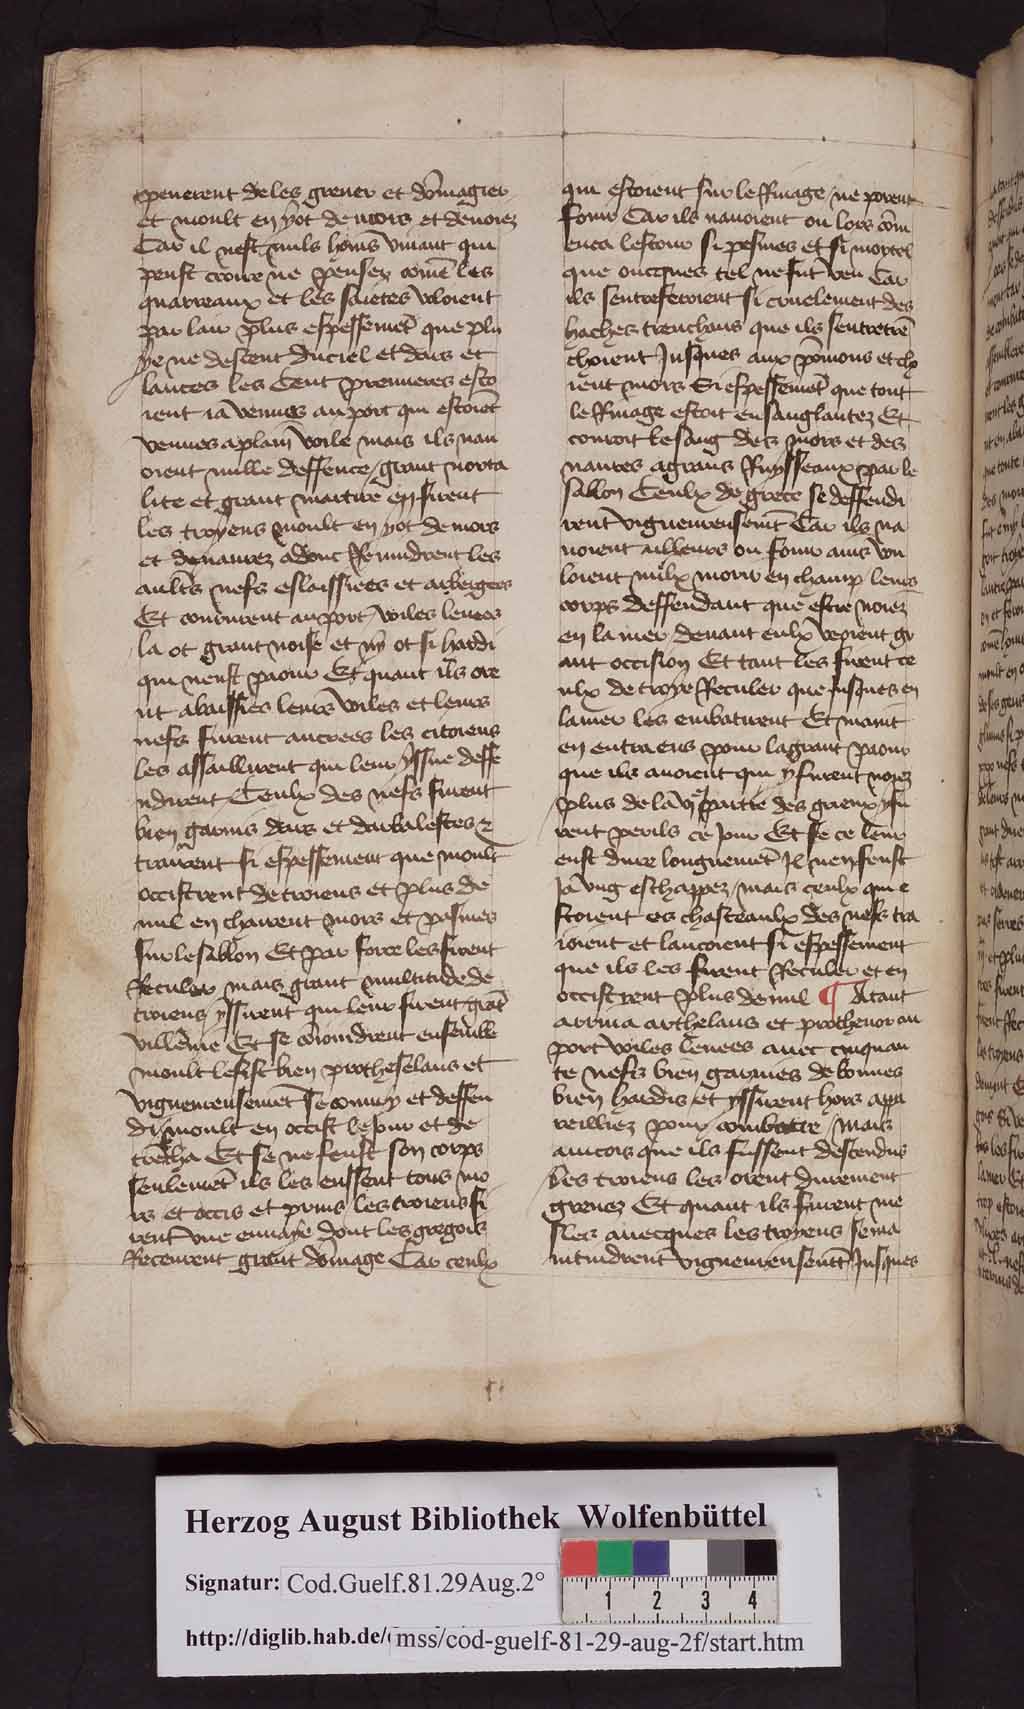 penerent de les grever et dōmagier
et moult en yot de mors et de noiez
Car il nest nuls homs vivant qui
peust croire ne penser comēt les
quarreaux et les saietes voloient
par lair plus espessemēt que plu
ye ne descent du ciel et dars et
lances les Cent premieres esto
ient ia venues au port qui estoiēt
venues a plain voile mais ils nau
oient nulle deffence / grant morta
lite et grant martire en firent
les troyens moult en yot de mors
et de naurez adonc Revindrent les
aultrs nefs eslaissiees et
Et coururent au port voiles levees
la ot grant noise et ny ot si hardi
qui neust paour Et quant ils ore
nt abaissies leurs voiles et leurs
nefs furent ancrees les citoiens
les assaillirent qui leur yssue deffe
ndirent Ceulx des nefs furent
bien garnis dars et darbalestes et
trairent si espessement que moult
occistrent de troiens et plus de
mil en chairent mors et pasmes
sur le sablon Et par force les firent
Reculer mais grant multitude de
troiens yssirent qui leur firent grāt
villenie Et se coioindrent ensemble
moult le fist bien protheselaus et
viguereusemēt se convy et deffen
di moult en occist le jour et de
trēcha Et se ne feust son corps
seulemēt ils les eussent tous mo
rs et occis et prins les troiens fi
rent une envaye dont les gregois
Receurent grant domage Car ceulx
qui estoient sur le Rivage / ne porent
fouir Car ils navoient ou lors com
enca lestour si pesmes et si mortel
que oncques tel ne fut veu Car
ils sentreferoient si cruelement des
haches trenchans que ils sentretrē
choient Jusques aux pōmons et ch
ient mors Si espessemēt que tout
le Rivage estoit ensanglantez Et
couroit le sang des mors et des
naures a grans Ruysseaux par le
sablon Ceulx de grece se deffendi
rent viguereusemēt Car ils na
voient ailleurs ou fouir ains vou
loient mielx morir en champ leurs
corps deffendant que estre noiez
en la mer devant eulx veoient gr
ant occision Et tant les firent ce
ulx de troye Reculer que jusques en
la mer les embatirent Et maint
en entra ens pour la grant paour
que ils avoient qui y furent noiez
plus de la vjᵉ partie des grieux y fu
rent perils ce jour Et se ce leur
eust dure longuemēt Il nen feust
Ja ung eschappez / mais ceulx qui e
stoient es chasteaulx des nefs tra
ioient et lancoient si espessement
que ils les firent Reculer et en
occistrent plus de mil ¶ Atant
arriva arthelaus et prothenor au
port voiles levees avec cinquan
te nefs bien garnies de bonnes
bien hardis / et yssirent hors appa
reilliez pour combatre / Mais
aincois que ils fussent descendus
les troiens les orent durement
grevez Et quant ils furent me
sles avecques les troyens se ma
intindrent viguereusemēt Jusques
Herzog August Bibliothek Wolfenbüttel
Signatur: Cod.Guelf.81.29Aug.2°
1 2 3 4
http://diglib.hab.de/ mss/cod-guelf-81-29-aug-2f/start.htm